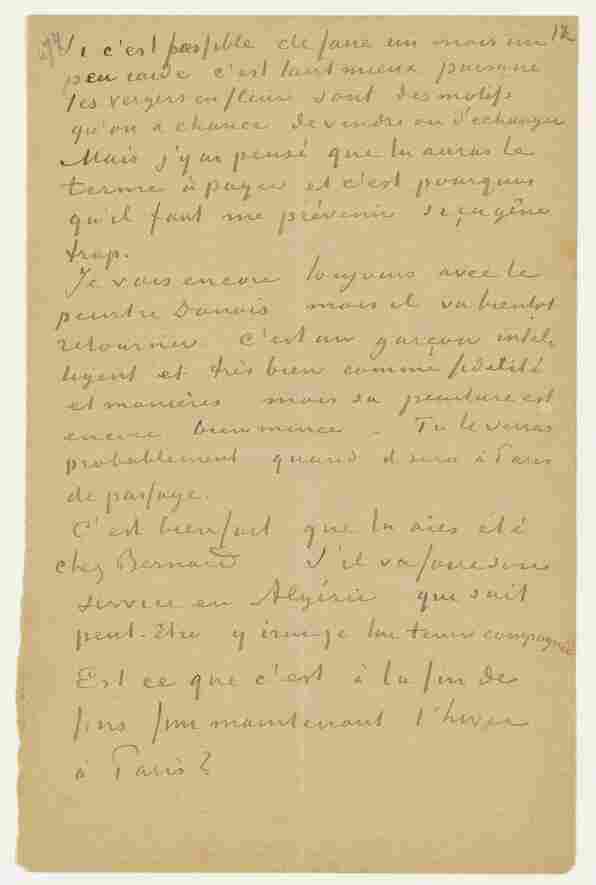 12
Si c'est possible de faire un mois un
peu raide c'est tant mieux puisque
les vergers en fleur sont des motifs
qu'on a chance de vendre ou d'echanger
Mais j'y ai pensé que tu auras le
terme à payer et c'est pourquoi
qu'il faut me prévenir si ça gêne
trop.
Je vais encore toujours avec le
peintre Danois mais il va bientot
retourner C'est un garçon intel-
ligent et très bien comme fidelité
et manières mais sa peinture est
encore bien mince. Tu le verras
probablement quand il sera à Paris
de passage.
C'est bien fait que tu aies été
chez Bernard S'il va faire son
service en Algérie qui sait
peut-être y irai-je lui tenir compagnie
Est ce que c'est à la fin de
fins fini maintenant l'hiver
à Paris?